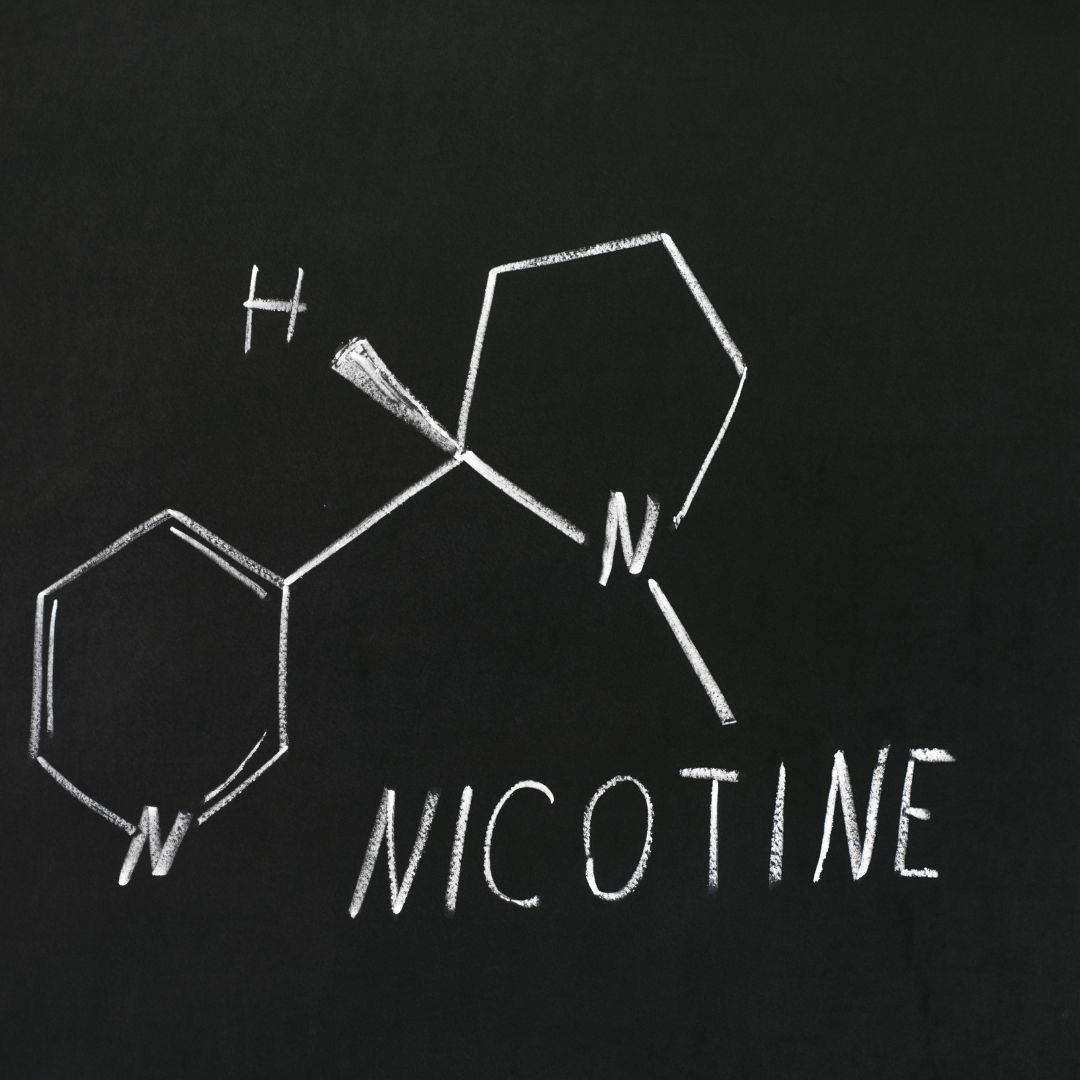 H
N
N
NICOTINE